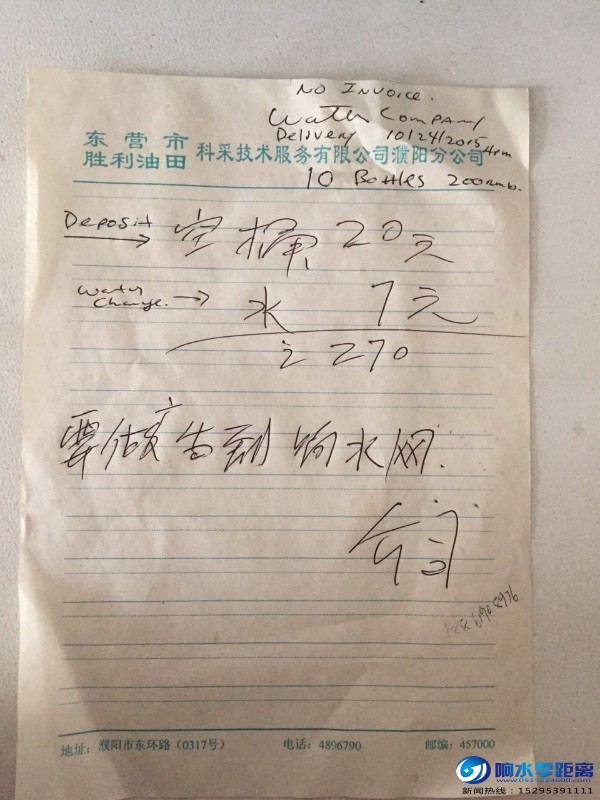 NO INVOICE.
Water Company
Delivery 10/24/2015 4pm
东营市
胜利油田 科采技术服务有限公司濮阳分公司
10 Bottles 200rmb.
Deposit → 空桶 20元
Water Charge. → 水 7元
270
要做广告到响水网.
公司
地址：濮阳市东环路（0317号） 电话：4896790 邮编：457000
响水零距离
新闻热线：15295391111